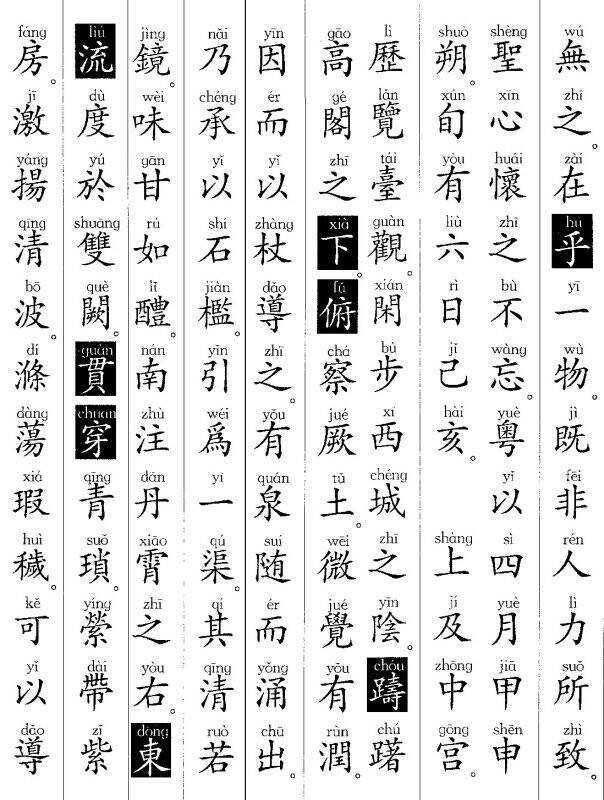 wú zhī zài hū yī wù jì fēi rén lì suǒ zhì
無之在乎一物。既非人力所致。
shèng xīn huái zhī bù wàng yuè yǐ sì yuè jiā shēn
聖心懷之不忘。粵以四月甲申
shuò xún yòu liù rì jǐ hài shàng jí zhōng gōng
朔。旬有六日己亥。上及中宮。
lì lǎn tái guàn xián bù xī chéng zhī yīn chóu chú
歷覽臺觀。閑步西城之陰。躊躇
gāo gé zhī xià fǔ chá jué tǔ wēi jué yǒu rùn
高閣之下。俯察厥土。微覺有潤。
yīn ér yǐ zhàng dǎo zhī yǒu quán suí ér yǒng chū
因而以杖導之。有泉随而涌出。
nǎi chéng yǐ shí jiàn yǐn wéi yī qú qí qīng ruò
乃承以石檻。引爲一渠。其清若
jìng wèi gān rú lǐ nán zhù dān xiāo zhī yòu dōng
鏡。味甘如醴。南注丹霄之右。東
liú dù yú shuāng què guàn chuān qīng suǒ yíng dài zǐ
流度於雙闕。貫穿青瑣。縈帶紫
fáng jī yáng qīng bō dí dàng xiá huì kě yǐ dǎo
房。激揚清波。滌蕩瑕穢。可以導